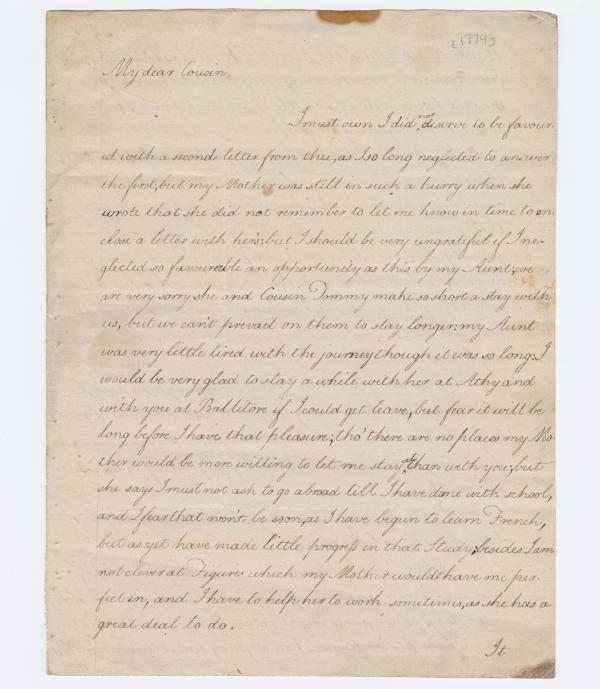 [1774]
My dear Cousin,
I must own I did not deserve to be favour
ed with a second letter from thee, as I so long neglected to answer
the first; but my Mother was still in such a hurry when she
wrote that she did not remember to let me know in time to en
close a letter with hers: but I should be very ungrateful if I ne-
glected so favourable an opportunity as this by my Aunt; we
are very sorry she and Cousin Tommy make so short a stay with
us, but we can't prevail on them to stay longer: my Aunt
was very little tired with the journey though it was so long: I
would be very glad to stay a while with her at Athy and
with you at Ballitore if I could get leave, but fear it will be
long before I have that pleasure; tho' there are no places my Mo-
ther would be more willing to let me stay at than with you; but
she says I must not ask to go abroad till I have done with school,
and I fear that won't be soon, as I have begun to learn French,
but as yet have made little progress in that Study; besides I am
not clever at Figures which my Mother would have me per-
fect in, and I have to help her to work sometimes, as she has a
great deal to do.
It